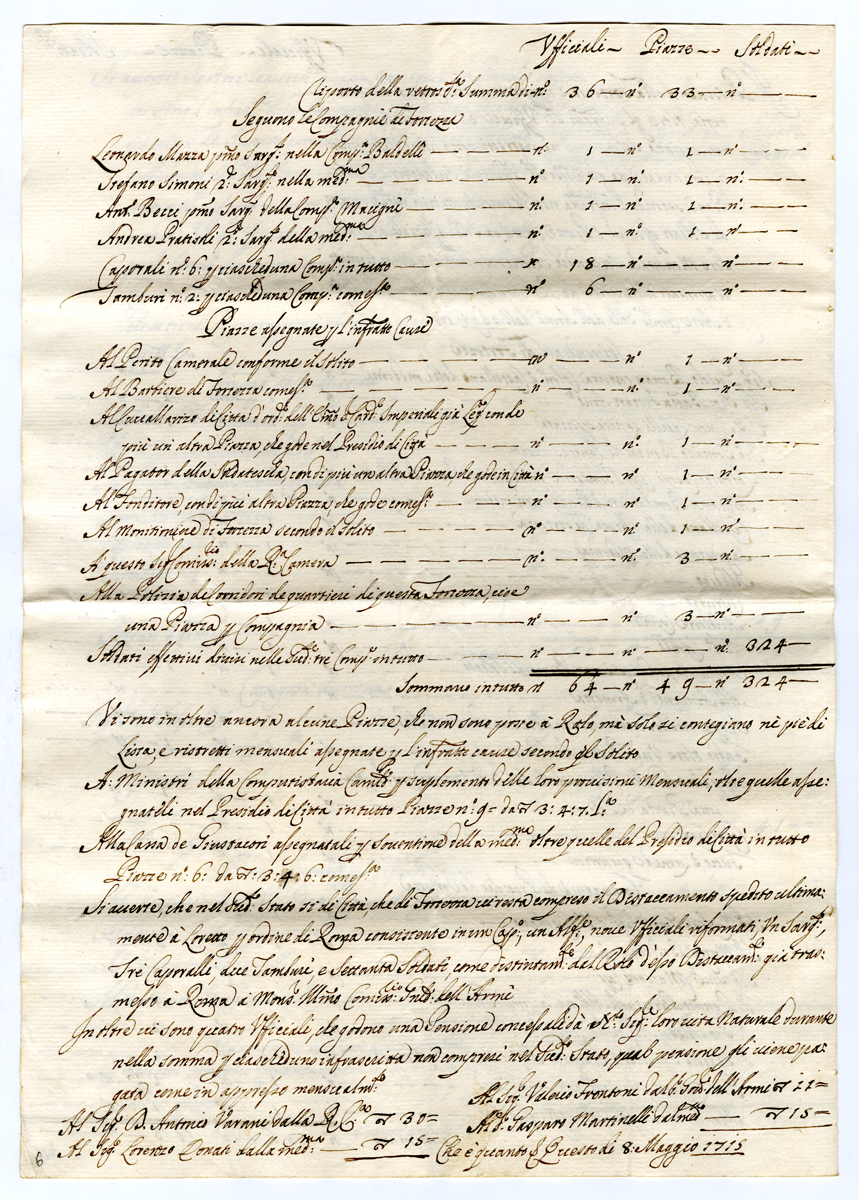 Ufficiali — Piazze — Soldati —
Riporto della retros.ta Summa di n.° 36 — n.° 33 — n.°
Seguono le Compagnie di Fortezza
Leonardo Mazza p.mo Sarg.te nella Comp.a Baldelli — n.° 1 — n.° 1 — n.°
Stefano Simoni 2.° Sarg.te nella med.ma — n.° 1 — n.° 1 — n.°
Ant.° Becci p.mo Sarg.te della Comp.a Macigni — n.° 1 — n.° 1 — n.°
Andrea Pratisoli 2.° Sarg.te della med.ma — n.° 1 — n.° 1 — n.°
Caporali n.° 6: p ciascheduna Comp.a in tutto — n.° 18 — n.° — n.°
Tamburi n.° 2: p ciascheduna Comp.a come s.a — n.° 6 — n.° — n.°
Piazze assegnate p l'infratte Cause
Al Perito Camerale conforme il solito — n.° — n.° 1 — n.°
Al Barbiere di Fortezza come s.a — n.° — n.° 1 — n.°
Al di Città d'ord.e dell'E.mo Card.e Imperiali già Leg.to con de
più un'altra Piazza, che gode nel Presidio di Città — n.° — n.° 1 — n.°
Al Pagator della Soldatesca, con di più un altra Piazza che gode in Città n.° — n.° 1 — n.°
Al Fonditore, con di più altra Piazza, che gode come s.a — n.° — n.° 1 — n.°
Al Monitioniere di Fortezza secondo il solito — n.° — n.° 1 — n.°
A questo Sig.r Comiss.rio della R.a Camera — n.° — n.° 3 — n.°
Alla Polizia de Corridori de quartieri di questa Fortezza, cioè
una Piazza p Compagnia — n.° — n.° 3 — n.°
Soldati effettivi divisi nelle Sud.e tre Comp.e in tutto — n.° — n.° 324 —
Sommano in tutto n.° 64 — n.° 49 — n.° 324 —
Vi sono in oltre ancora alcune Piazze, che non sono poste à Rolo, mà solo si conteggiano nè piè di
Lista, e ristretti mensuali assegnate p l'infratte cause secondo il solito
A: Ministri della Computistaria Cam.le p suplemento delle loro provisioni Mensuali, oltre quelle asse:
gnateli nel Presidio di Città in tutto Piazze n.° 9 = da 3: 4: 7: l'
Alla Cassa de Giustacori assegnatali p soventione della med.ma oltre quelle del Presidio di Città in tutto
Piazze n.° 6: da 3: 4: 6: come s.a
Si averte, che nel Sud.° Stato sì di Città, che di Fortezza vi resta compreso il Distaccamento spedito ultima:
mente à Loreto p ordine di Roma consistente in un Cap.°, un Alf.e, nove Ufficiali riformati, Un Sarg.te,
Tre Caporalli, due Tamburi, e Settanta Soldati, come distintam.te dal Rolo d'esso Distaccam.to già tras:
messo à Roma à Mons.r Ill.mo Comiss.rio Gn.le dell'Armi
In oltre vi sono quatro Ufficiali, che godono una Pensione concessali dà N.ro Sig.re loro vita Naturale durante
nella somma p ciascheduno infrascritta non compresi nel Sud.° Stato, qual pensione gli viene pa:
gata come in appresso mensualm.te
Al Sig.r D. Antonio Varani dalla R. C.ra 30 =
Al Sig.r Lorenzo Donati dalla med.ma — 15 =
Al Sig.r Valerio Frontoni dal dell'Armi 12 =
Al S.r Gasparo Martinelli dal med.mo — 15 =
Che è quanto &. Questo dì 8: Maggio 1715
6